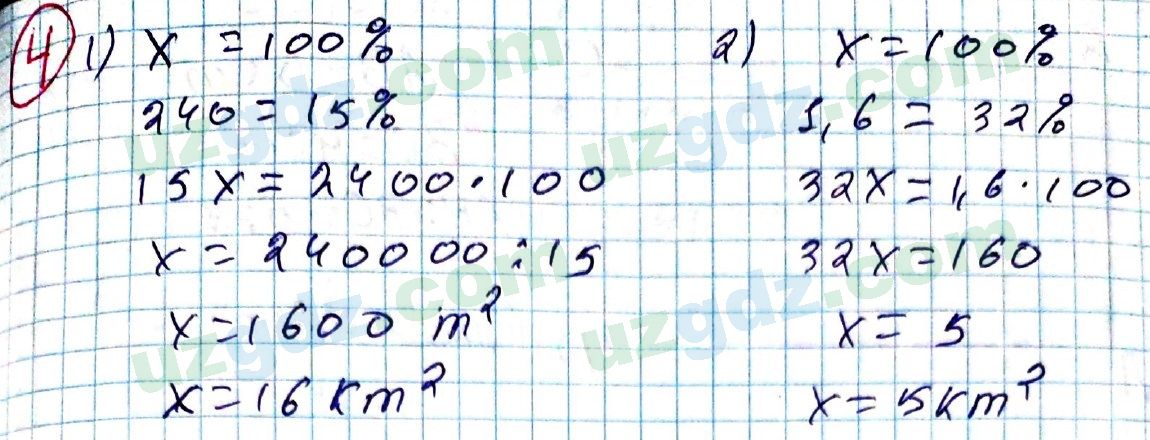 4 1) x = 100%
240 = 15%
15x = 2400 · 100
x = 240000 : 15
x = 1600 m²
x = 16 km²
2) x = 100%
1,6 = 32%
32x = 1,6 · 100
32x = 160
x = 5
x = 5 km²
uzgdz.com
uzgdz.com
uzgdz.com
uzgdz.com